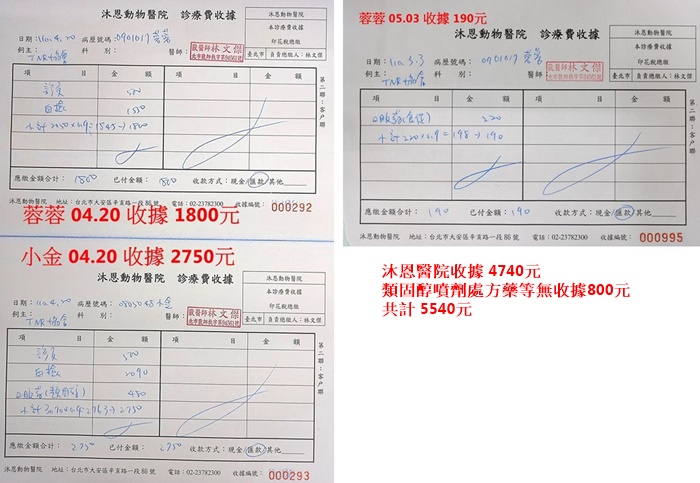 沐恩動物醫院 診療費收據
沐恩動物醫院
本診療費收據
印花稅總繳
臺北市 負責總繳人:林文傑
日期:110.4.20 病歷號碼:0901017 蓉蓉
飼主:TNR協會 科 別: 醫師:獸醫師林文傑
項 目 金 額 項 目 金 額
診療 500
血檢 1550
小計 2050x0.9=1845→1800
第二聯:客戶聯
應繳金額合計:1800 已付金額:1800 收款方式:現金/匯款/其他
沐恩動物醫院 地址:台北市大安區辛亥路一段86號 電話:02-23782300 收據編號:000292
蓉蓉 04.20 收據 1800元
小金 04.20 收據 2750元
沐恩動物醫院 診療費收據
沐恩動物醫院
本診療費收據
印花稅總繳
臺北市 負責總繳人:林文傑
日期:110.4.20 病歷號碼:0805048 小金
飼主:TNR協會 科 別: 醫師:獸醫師林文傑
項 目 金 額 項 目 金 額
診療 500
血檢 2090
口服藥(類固醇) 480
小計 3070x0.9=2763→2750
第二聯:客戶聯
應繳金額合計:2750 已付金額:2750 收款方式:現金/匯款/其他
沐恩動物醫院 地址:台北市大安區辛亥路一段86號 電話:02-23782300 收據編號:000293
蓉蓉 05.03 收據 190元
沐恩動物醫院 診療費收據
沐恩動物醫院
本診療費收據
印花稅總繳
臺北市 負責總繳人:林文傑
日期:110.5.3 病歷號碼:0901017 蓉蓉
飼主:TNR協會 科 別: 醫師:獸醫師林文傑
項 目 金 額 項 目 金 額
口服藥 220
小計 220x0.9=198→190
第二聯:客戶聯
應繳金額合計:190 已付金額:190 收款方式:現金/匯款/其他
沐恩動物醫院 地址:台北市大安區辛亥路一段86號 電話:02-23782300 收據編號:000995
沐恩醫院收據 4740元
類固醇噴劑處方藥等無收據800元
共計 5540元